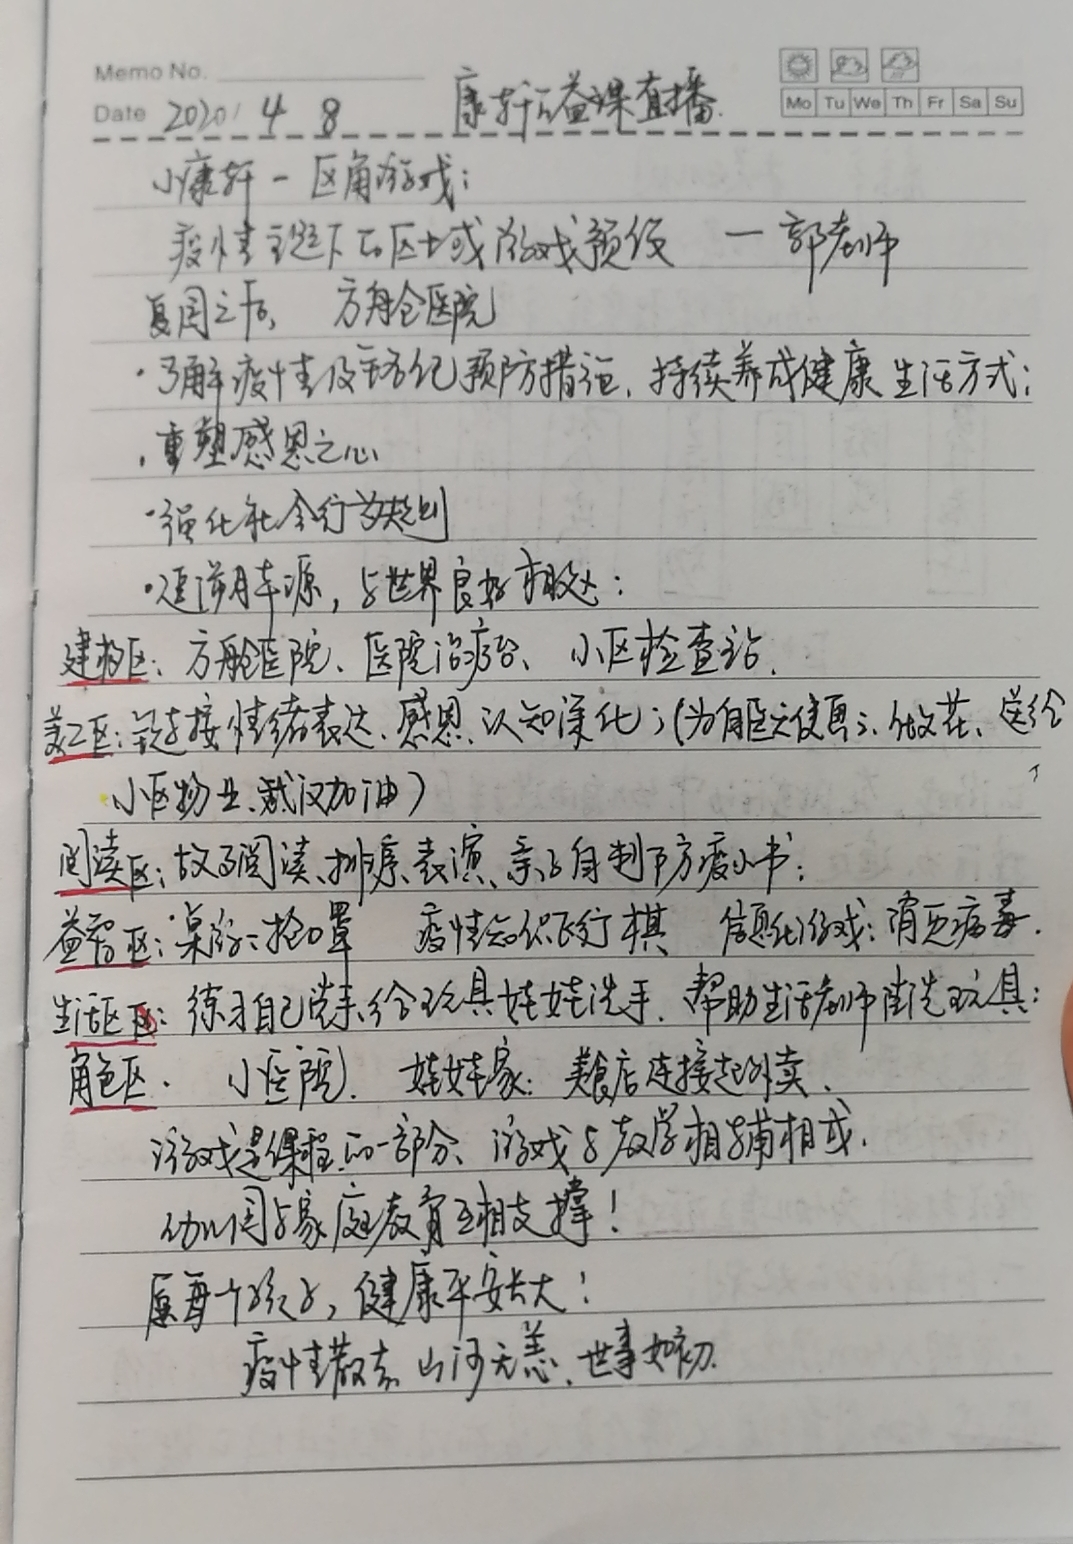 Memo No.
Date 2020/ 4 8 康轩公益课直播.
Mo Tu We Th Fr Sa Su
小康轩一区角游戏:
疫情主题下的区域游戏预设 一 郭老师
复园之后, 方舟仓医院
·了解疫情及 预防措施, 持续养成健康生活方式;
·重塑感恩之心
·强化社会行为规则
· 丰源, 与世界良好相处:
建构区: 方舱医院、医院治疗台、小区检查站.
美工区: 链接情绪表达、感恩、认知深化; (为白医天使画 、做花、送给
小区物业、武汉加油)
阅读区: 故事阅读、排序、表演、亲子自制防疫小书;
益智区: 桌游: 抢口罩 疫情知识飞行棋 游戏: 消灭病毒.
生活区: 练习自己洗手、给玩具娃娃洗手、帮助生活老师清洗玩具;
角色区. 小医院). 娃娃家: 美食店连接起外卖.
游戏是课程的一部分、游戏与教学相辅相成.
幼儿园与家庭教育互相支撑!
愿每个孩子, 健康平安长大!
疫情散去、山河无恙、世事如初.